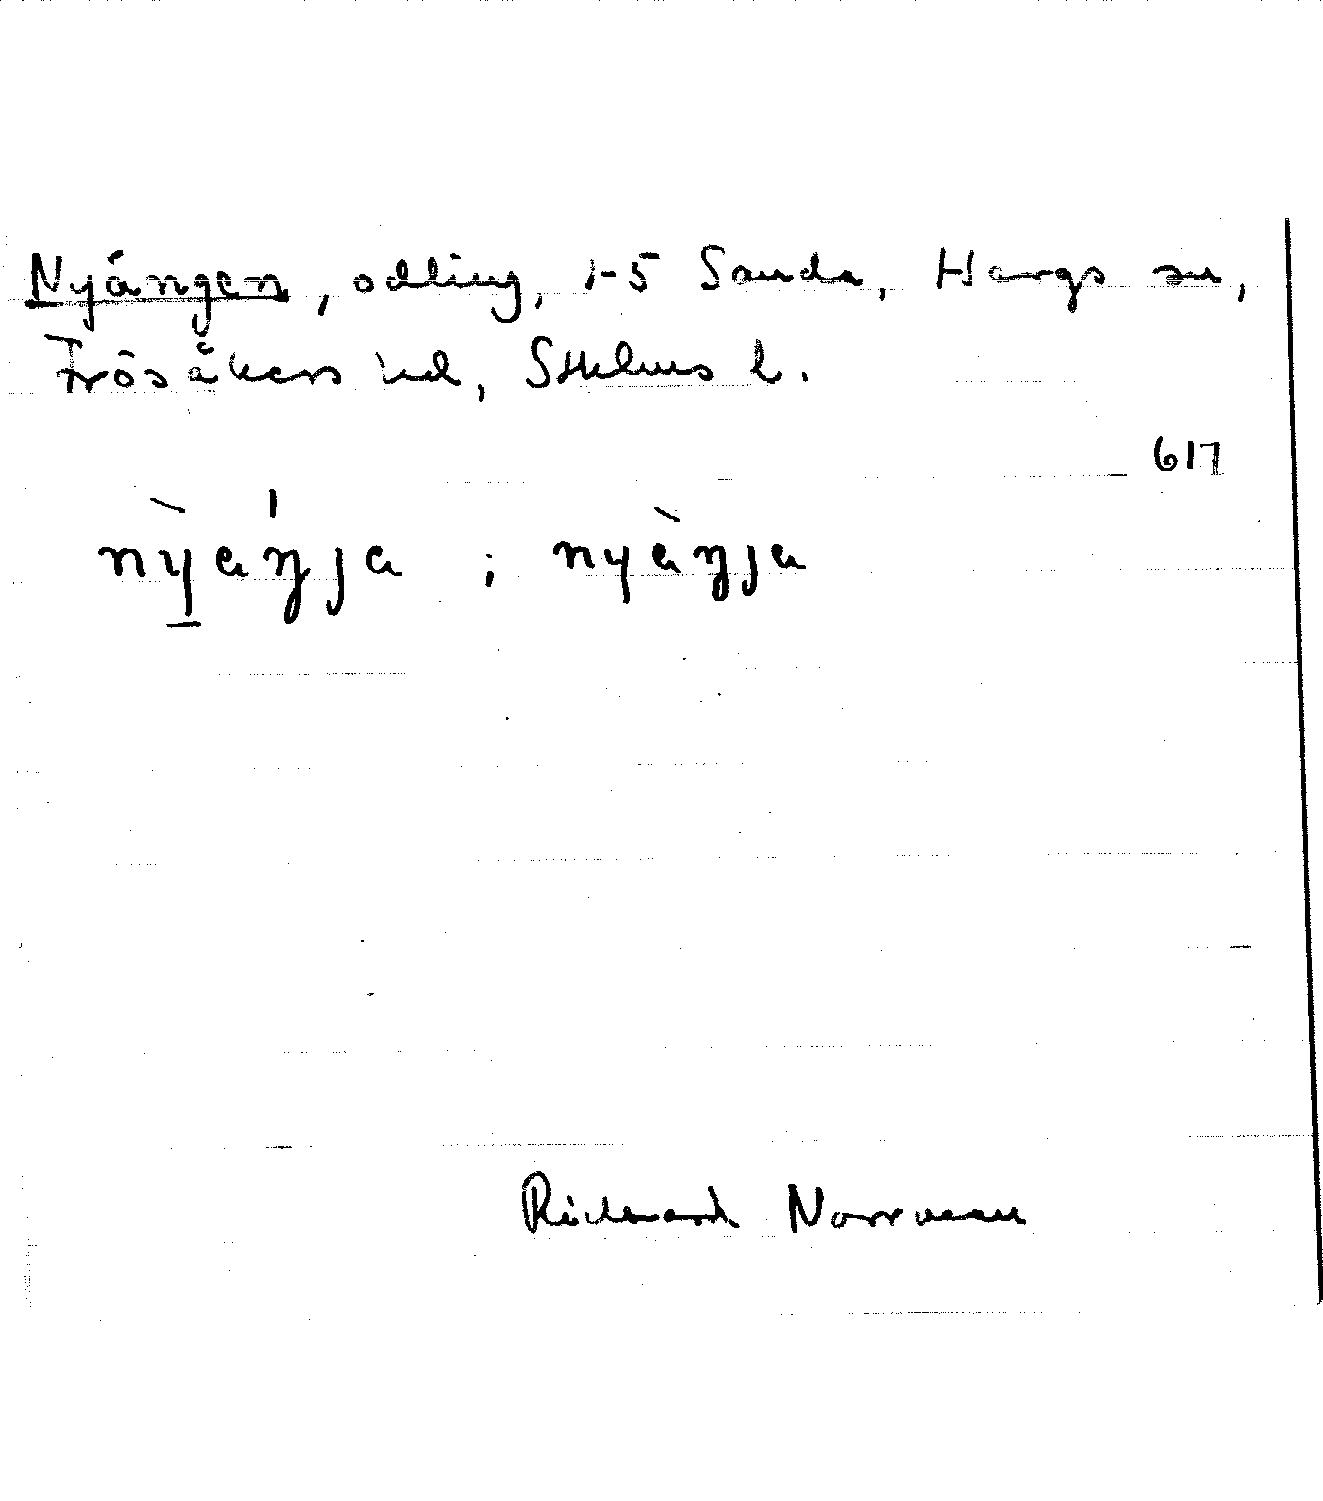 Nyängen, odling, 1-5 Sanda, Hargs sn,
Frösåkers hd, Sthlms l.
617
nỳaŋja ; nyàŋja
Richard Norrman